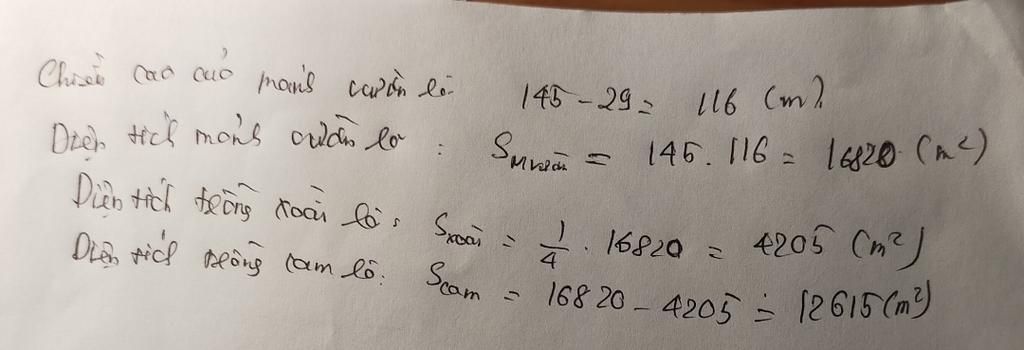 Chiều cao củả mảnh vườn là: 145 - 29 = 116 (m).
Diện tích mảnh vườn là : S_Mvườn = 145 . 116 = 16820 (m²)
Diện tích trồng xoài là: S_xoài = 1/4 . 16820 = 4205 (m²)
Diện tích trồng cam là: S_cam = 16820 - 4205 = 12615 (m²)